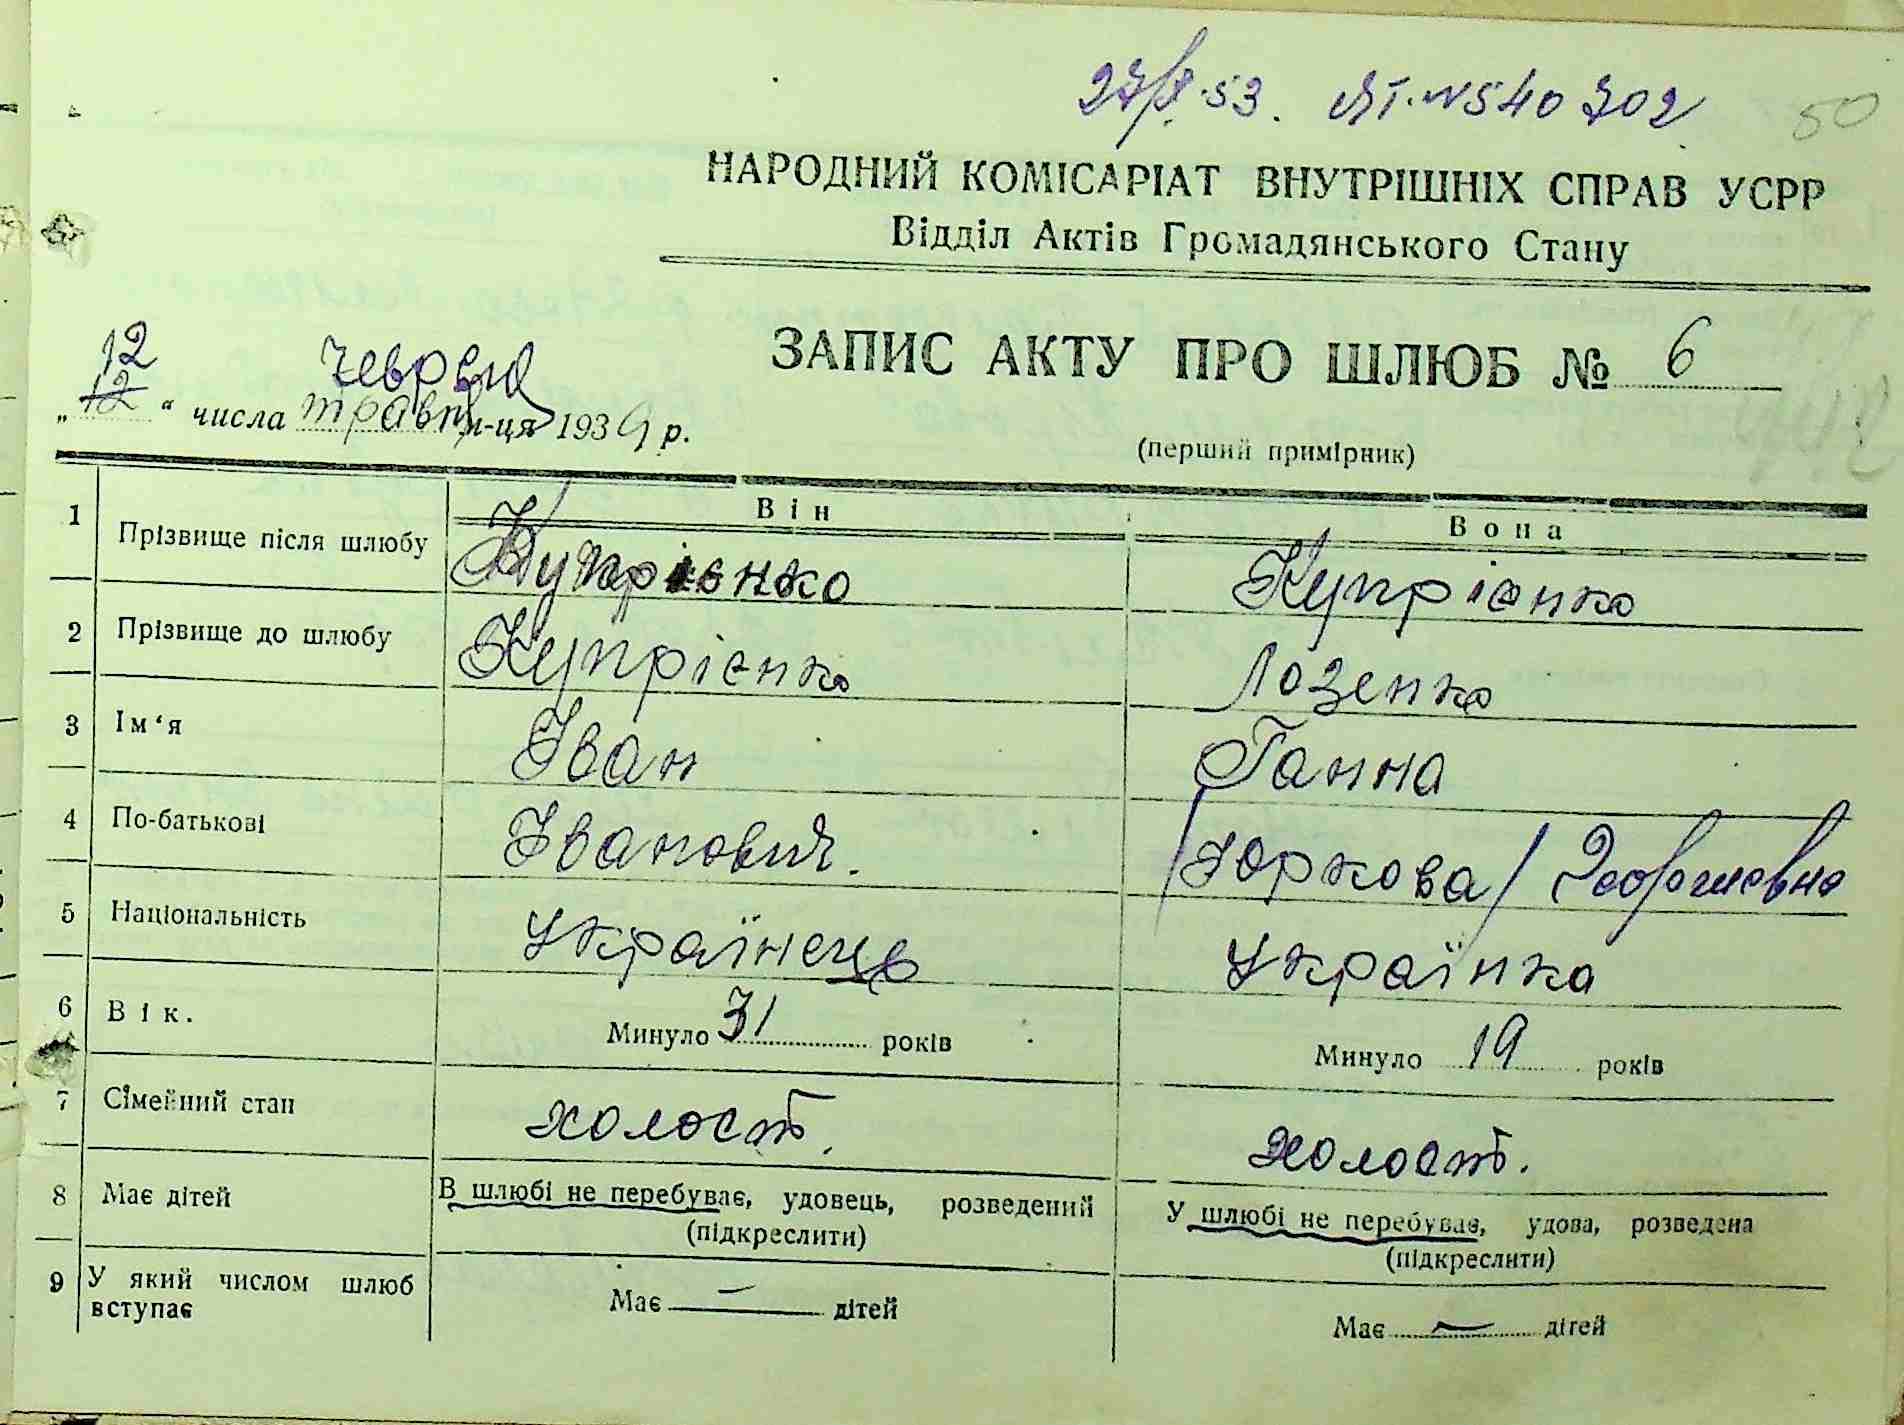 27/X.53. ЯТ.№540702
50
НАРОДНИЙ КОМІСАРІАТ ВНУТРІШНІХ СПРАВ УСРР
Відділ Актів Громадянського Стану
ЗАПИС АКТУ ПРО ШЛЮБ № 6
12 червня
„12“ числа травня м-ця 1939 р.
(перший примірник)
Він Вона
1 Прізвище після шлюбу Купрієнко Купрієнко
2 Прізвище до шлюбу Купрієнко Лозенко
3 Ім‘я Іван Ганна
4 По-батькові Іванович. /Юркова/ Георгиевна
5 Національність Українець Українка
6 Вік. Минуло 31 років Минуло 19 років
7 Сімейний стан холост. холост.
8 Має дітей В шлюбі не перебуває, удовець, розведений У шлюбі не перебуває, удова, розведена
(підкреслити) (підкреслити)
9 У який числом шлюб Має — дітей Має — дітей
вступає